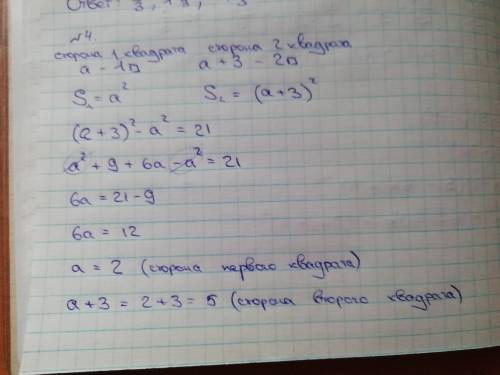 Ответ: 3, 13, 3
№4.
сторона 1 квадрата сторона 2 квадрата
a - 1□ a + 3 - 2□
S₁ = a² S₂ = (a+3)²
(a+3)² - a² = 21
a² + 9 + 6a - a² = 21
6a = 21 - 9
6a = 12
a = 2 (сторона первого квадрата)
a + 3 = 2 + 3 = 5 (сторона второго квадрата)